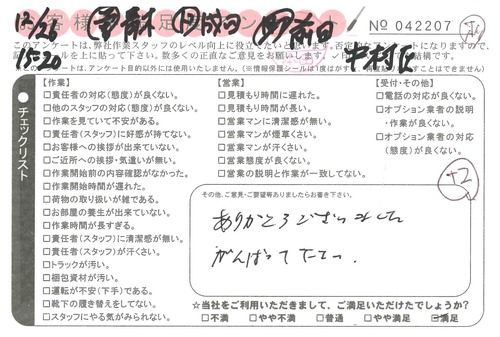 12/26
15:20
No 042207
このアンケートは、弊社作業スタッフのレベル向上に役立て
チェックリスト
【作業】
□責任者の対応(態度)が良くない。
□他のスタッフの対応(態度)が良くない。
□作業を見ていて不安がある。
□責任者(スタッフ)に好感が持てない。
□お客様への挨拶が出来ていない。
□ご近所への挨拶・気遣いが無い。
□作業開始前の内容確認がなかった。
□作業開始時間が遅れた。
□荷物の取り扱いが雑である。
□お部屋の養生が出来ていない。
□作業時間が長すぎる。
□責任者(スタッフ)に清潔感が無い。
□責任者(スタッフ)が汗くさい。
□トラックが汚い。
□梱包資材が汚い。
□運転が不安(下手)である。
□靴下の履き替えをしてない。
□スタッフにやる気がみられない。
【営業】
□見積もり時間に遅れた。
□見積もり時間が長い。
□営業マンに清潔感が無い。
□営業マンが煙草くさい。
□営業マンが汗くさい。
□営業態度が良くない。
□営業の説明と作業が一致してない。
【受付・その他】
□電話の対応が良くない。
□オプション業者の説明・作業が良くない。
□オプション業者の対応(態度)が良くない。
+2
その他、ご意見・ご要望等ありましたらお書き下さい。
ありがとうございました
がんばってた
☆当社をご利用いただきまして、ご満足いただけたでしょうか?
□不満 □やや不満 □普通 □やや満足 ☑満足